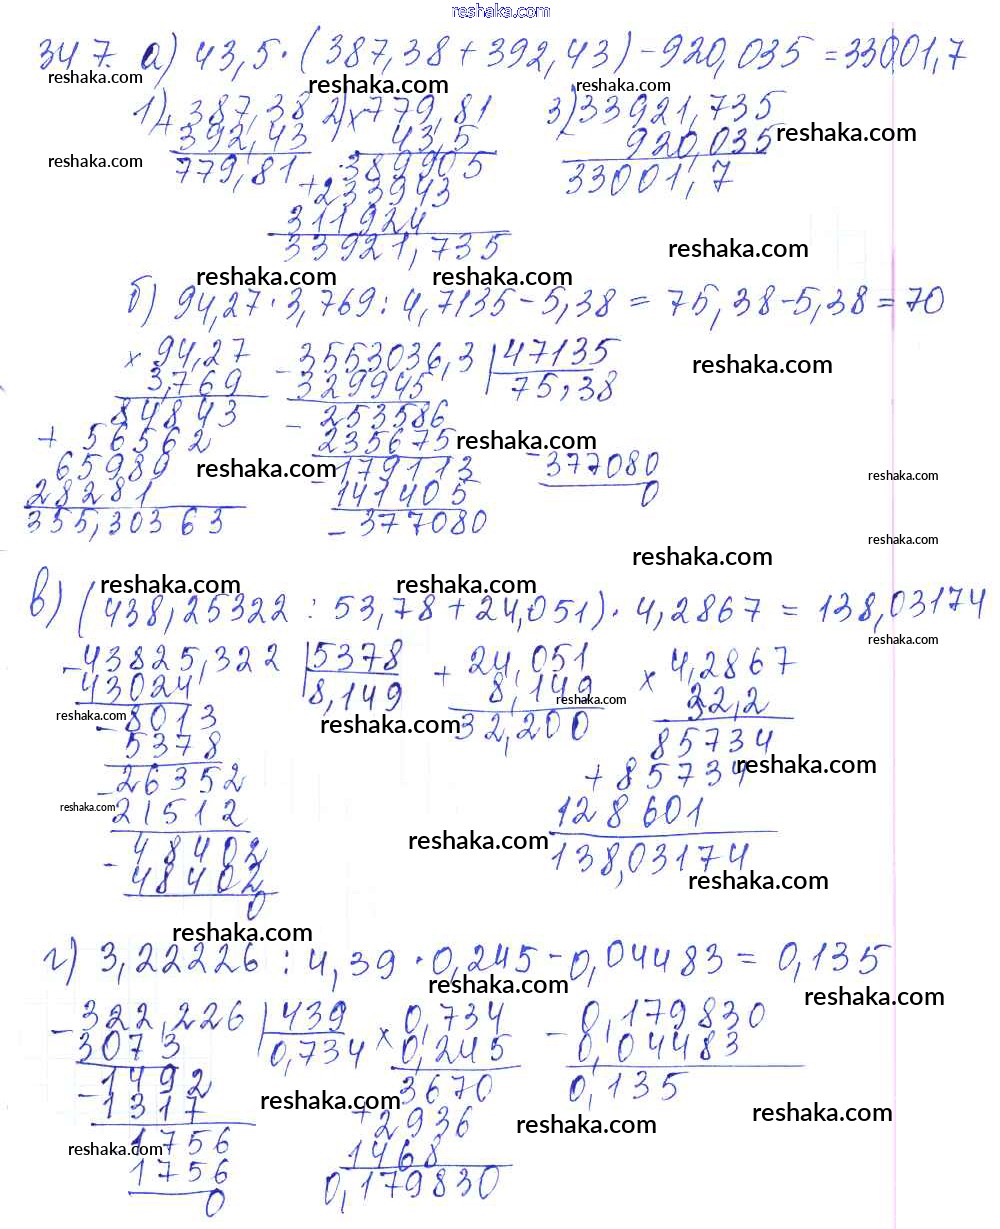 reshaka.com
347. а) 43,5 · (387,38 + 392,43) − 920,035 = 33001,7
reshaka.com reshaka.com reshaka.com
1) + 387,38
392,43
779,81
2) × 779,81
43,5
389905
+ 233943
311924
33921,735
3) 33921,735
920,035
33001,7
reshaka.com reshaka.com
reshaka.com
reshaka.com reshaka.com
б) 94,27 · 3,769 : 4,7135 − 5,38 = 75,38 − 5,38 = 70
× 94,27
3,769
84843
+ 56562
65989
28281
355,30363
− 3553036,3 | 47135
329945 | 75,38
− 253586
235675
− 179113
141405
− 377080
− 377080
0
reshaka.com
reshaka.com
reshaka.com reshaka.com
reshaka.com
reshaka.com
reshaka.com reshaka.com
в) (438,25322 : 53,78 + 24,051) · 4,2867 = 138,03174
reshaka.com
− 43825,322 | 5378
43024 | 8,149
− 8013
5378
− 26352
21512
− 48402
48402
0
+ 24,051
8,149
32,200
× 4,2867
32,2
85734
+ 85734
128601
138,03174
reshaka.com
reshaka.com reshaka.com
reshaka.com
reshaka.com
reshaka.com
reshaka.com
reshaka.com
г) 3,22226 : 4,39 · 0,245 − 0,04483 = 0,135
reshaka.com reshaka.com
− 322,226 | 439
3073 | 0,734
− 1492
1317
1756
1756
0
× 0,734
0,245
3670
+ 2936
1468
0,179830
− 0,179830
0,04483
0,135
reshaka.com reshaka.com reshaka.com
reshaka.com